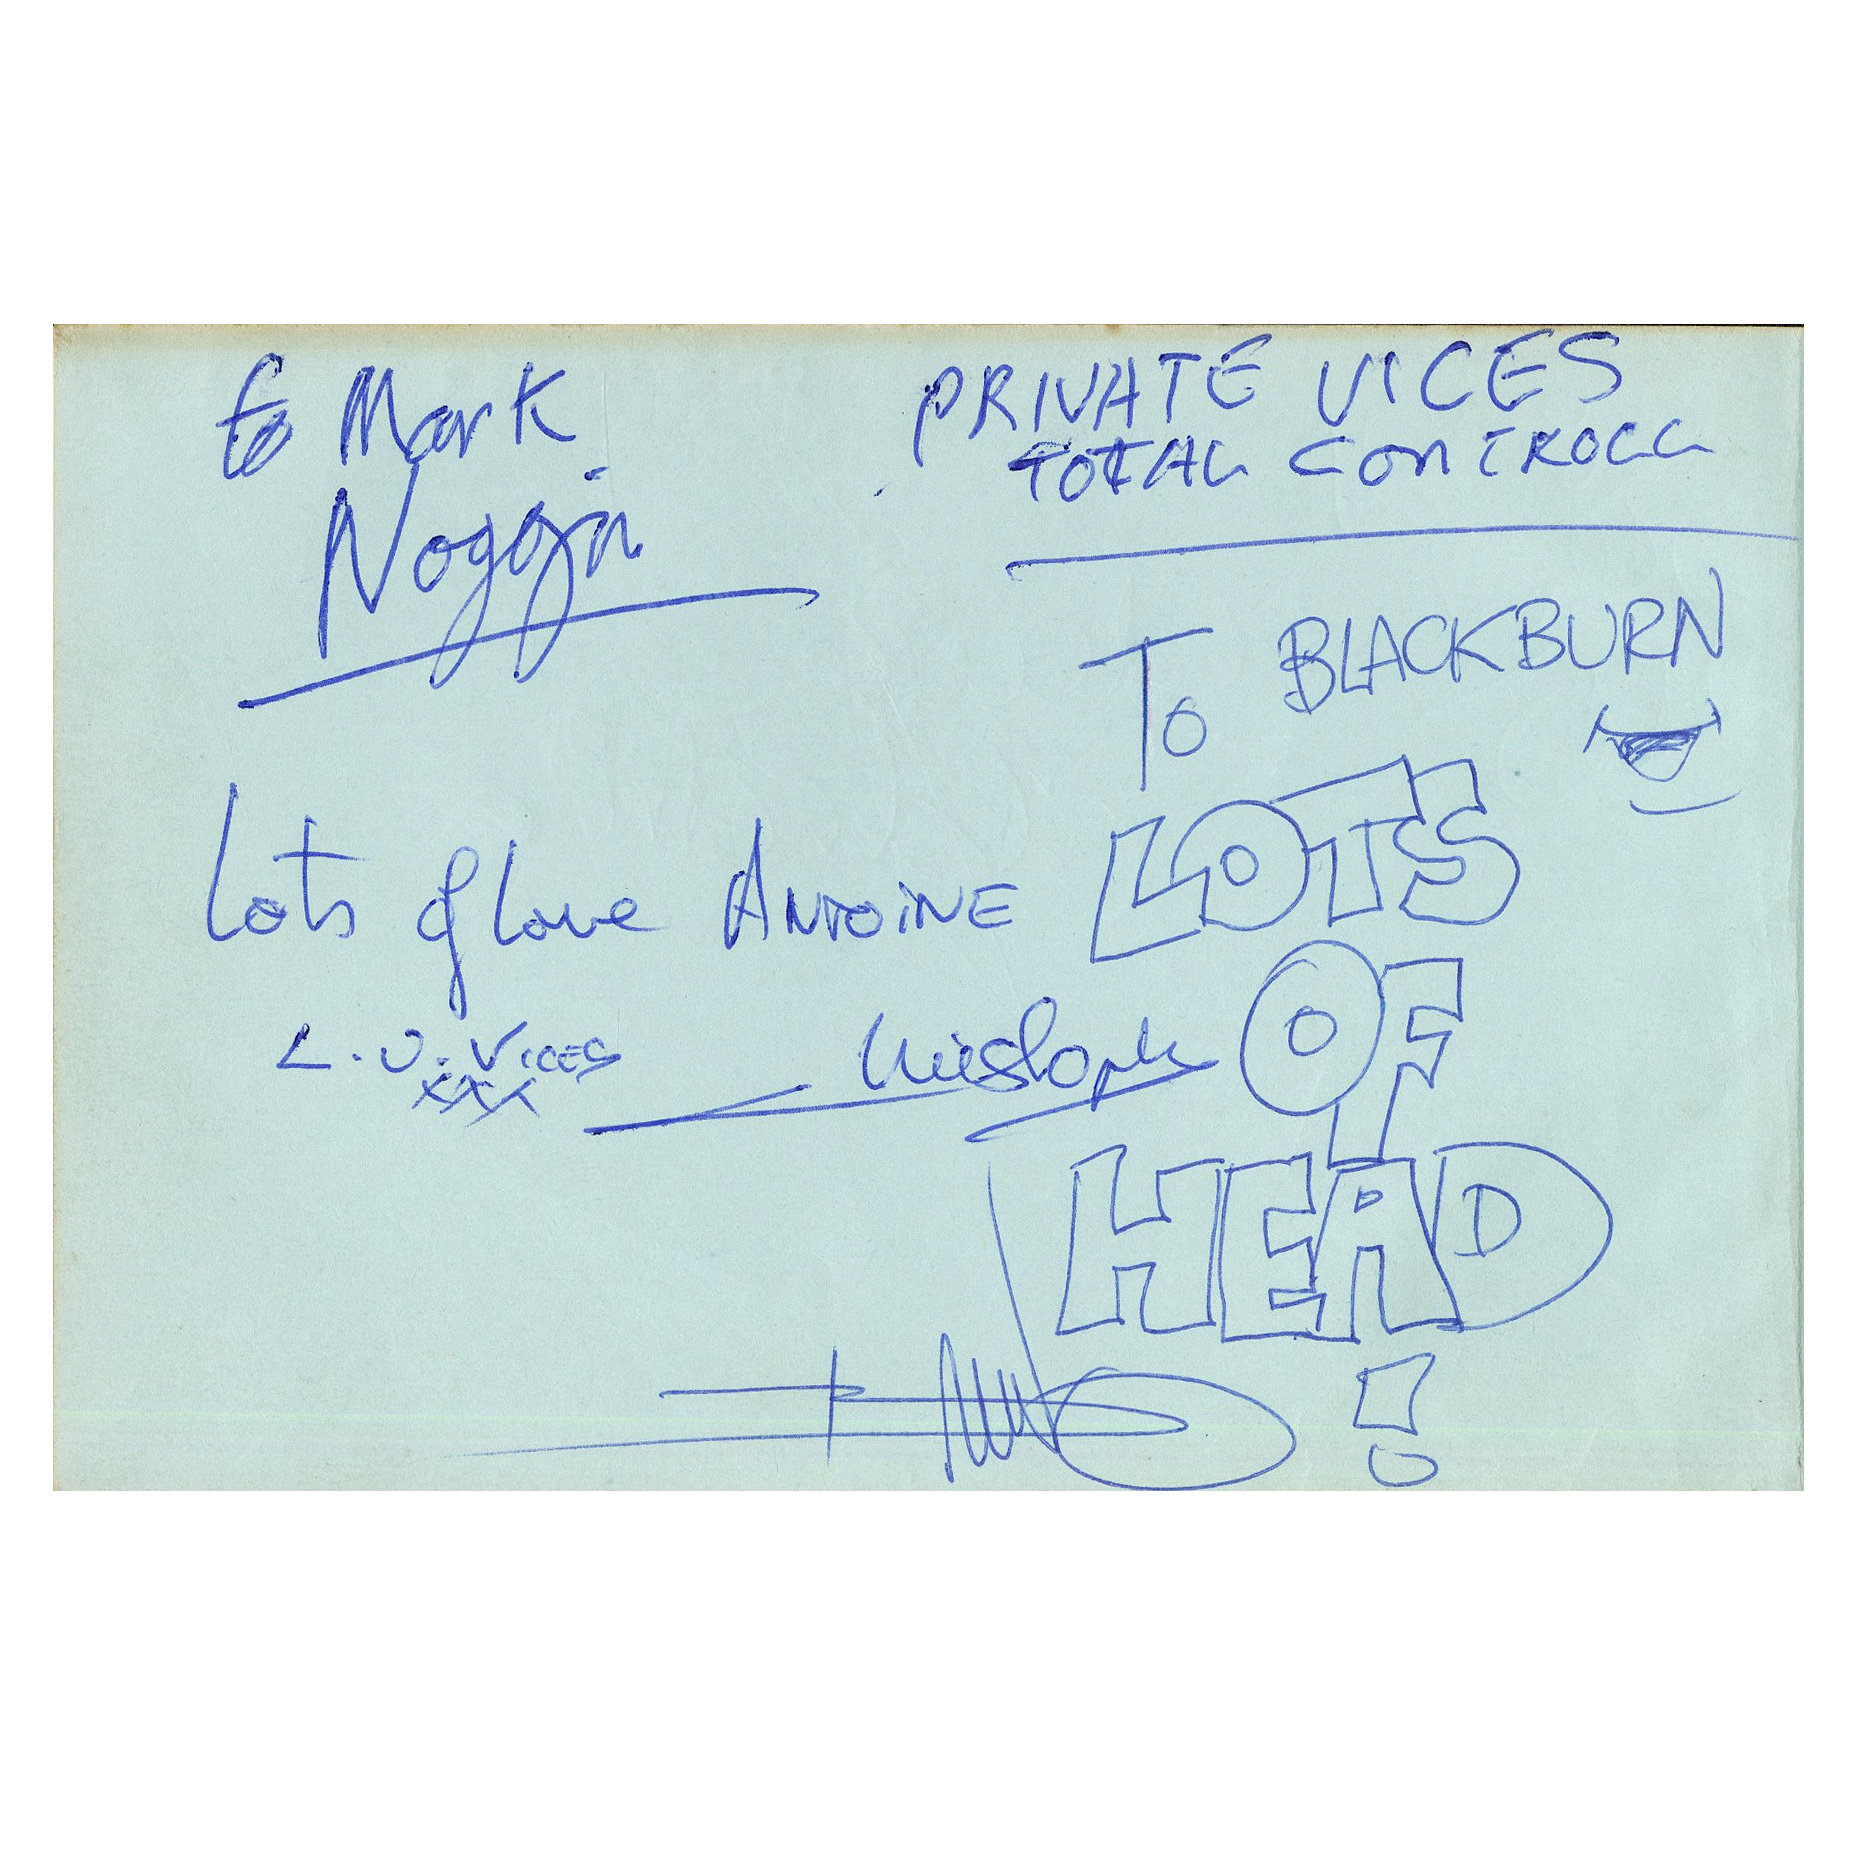 to Mark
Noggin
PRIVATE VICES
TOTAL CONTROLL
To BLACKBURN
Lots of love ANTOINE
L.U. VICES
XXX
LOTS
OF
HEAD
!